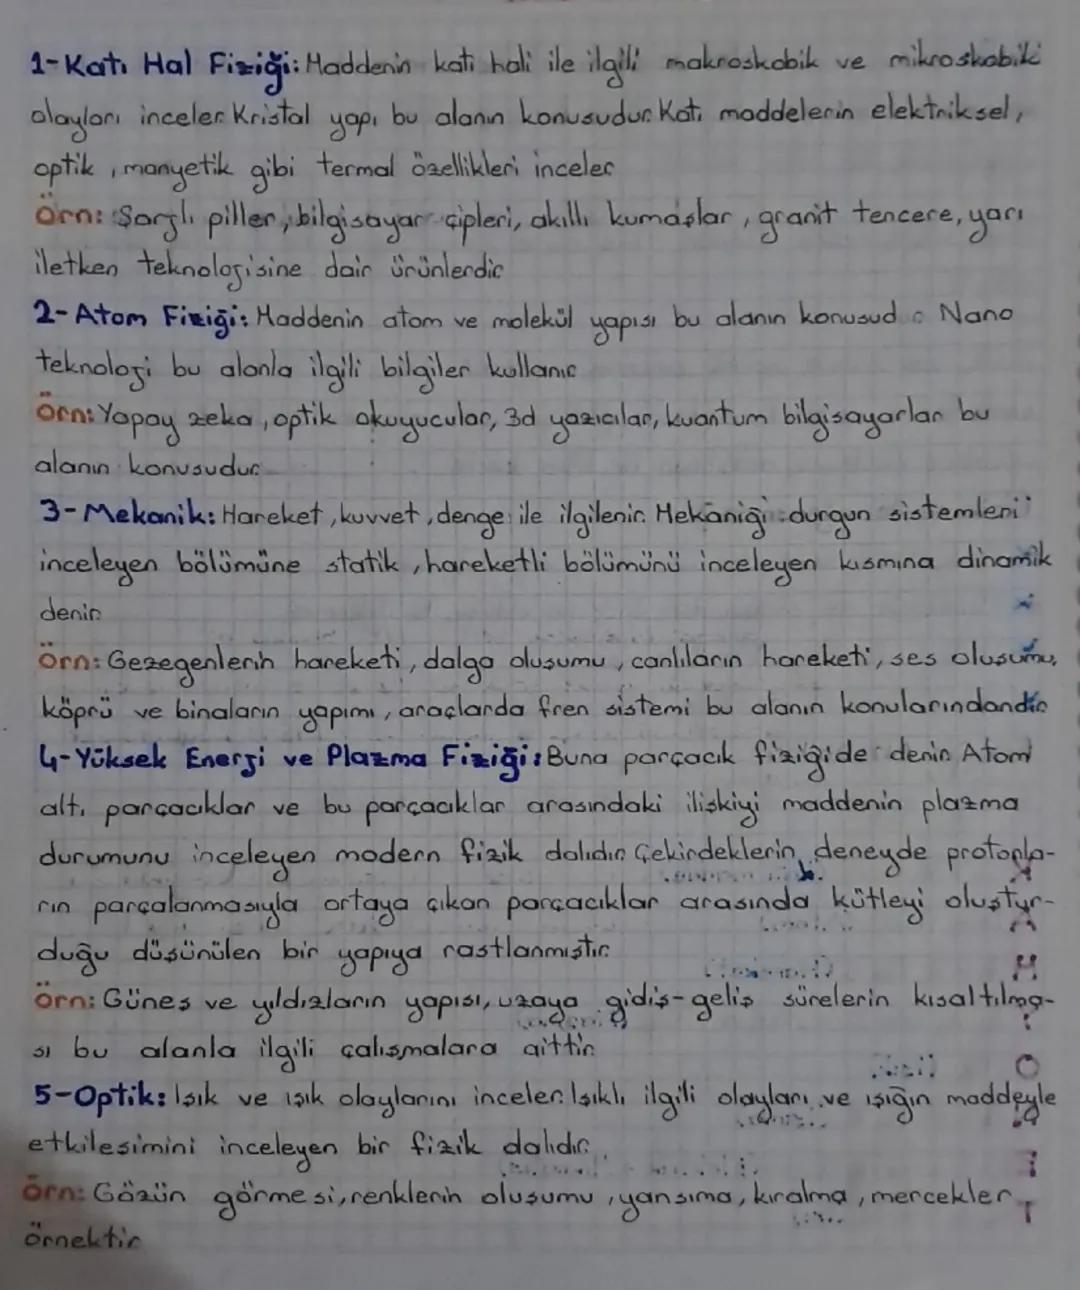 1-Katı Hal Fiziği: Maddenin katı hali ile ilgili makroskobik ve mikroskobiki
olayları inceler. Kristal yapı bu alanın konusudur. Katı maddelerin elektriksel,
optik, manyetik gibi termal özellikleri inceler
Örn: Şarjlı piller, bilgisayar çipleri, akıllı kumaşlar, granit tencere, yarı
iletken teknolojisine dair ürünlerdir
2-Atom Fiziği: Maddenin atom ve molekül yapısı bu alanın konusud r Nano
teknoloji bu alanla ilgili bilgiler kullanır
Örn: Yapay zeka, optik okuyucular, 3d yazıcılar, kuantum bilgisayarlar bu
alanın konusudur.
3-Mekanik: Hareket, kuvvet, denge ile ilgilenir. Mekaniği durgun sistemleri
inceleyen bölümüne statik, hareketli bölümünü inceleyen kısmına dinamik
denir.
Örn: Gezegenlerin hareketi, dalga oluşumu, canlıların hareketi, ses oluşumu,
köprü ve binaların yapımı, araçlarda fren sistemi bu alanın konularındandır
4-Yüksek Enerji ve Plazma Fiziği: Buna parçacık fiziğide denir. Atom
altı parçacıklar ve bu parçacıklar arasındaki ilişkiyi maddenin plazma
durumunu inceleyen modern fizik dalıdır. Çekirdeklerin, deneyde protonla-
rın parçalanmasıyla ortaya çıkan parçacıklar arasında kütleyi oluştur-
duğu düşünülen bir yapıya rastlanmıştır.
Örn: Güneş ve yıldızların yapısı, uzaya gidiş-geliş sürelerin kısaltılma-
sı bu alanla ilgili çalışmalara aittir.
5-Optik: Işık ve ışık olaylarını inceler. Işıklı ilgili olayları ve ışığın maddeyle
etkileşimini inceleyen bir fizik dalıdır.
Örn: Gözün görmesi, renklerin oluşumu, yansıma, kırılma, mercekler
örnektir